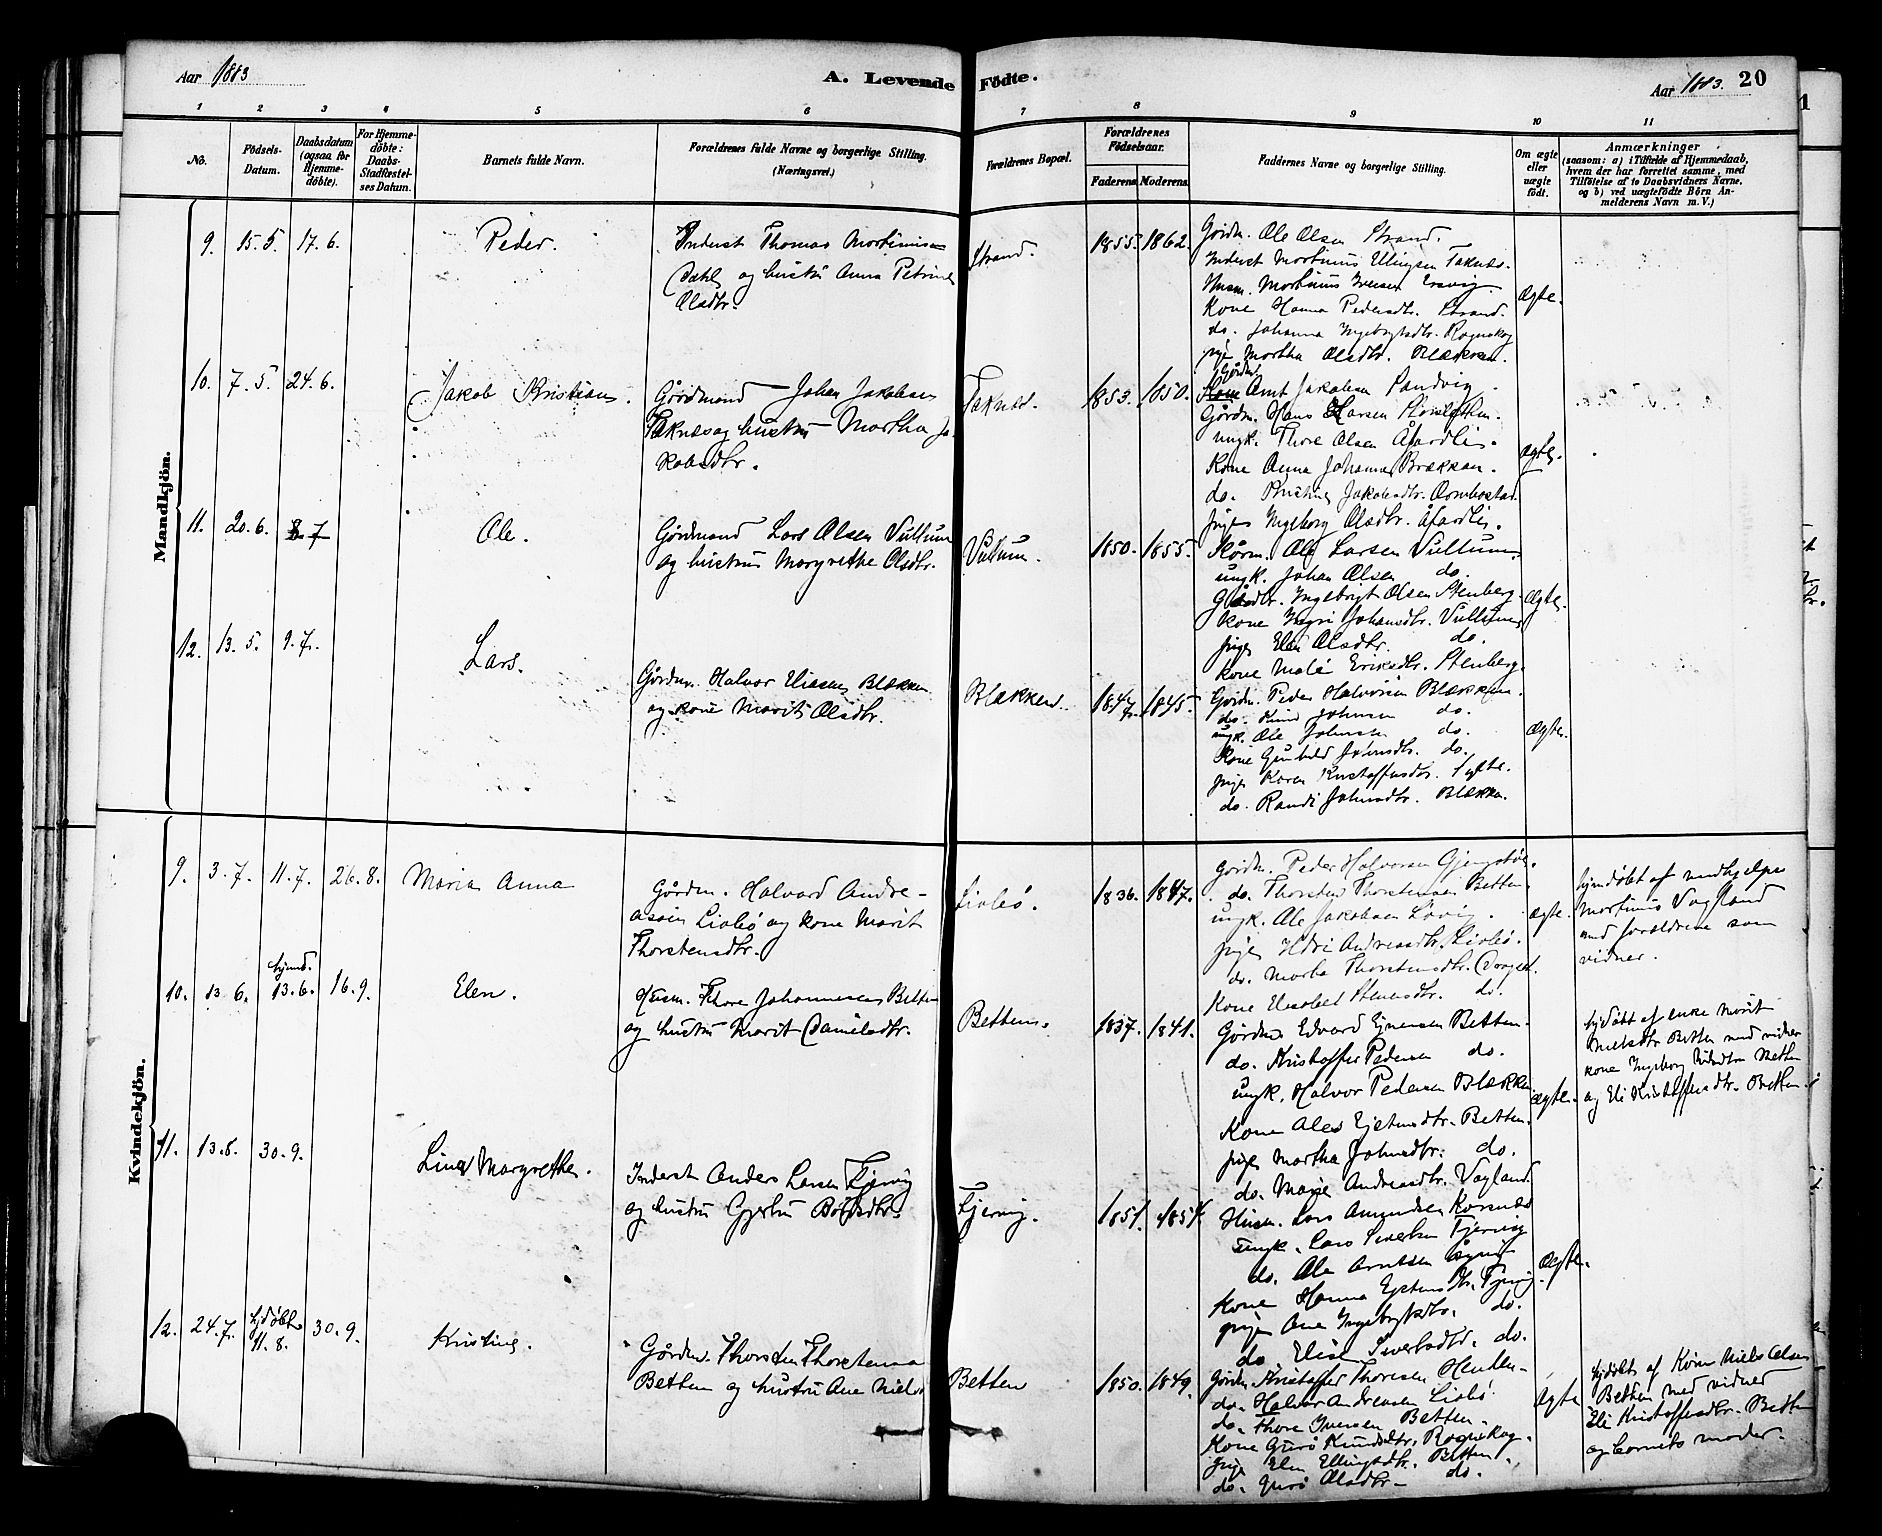 Aar 1883
A. Levende Fødte.
Aar 1883. 20
1 2 3 4 5 6 7 8 9 10 11
No.
Fødsels-
Datum.
Daabsdatum
(ogsaa for
Hjemme-
døbte).
For Hjemme-
døbte:
Daabs-
Stadfæstel-
ses Datum.
Barnets fulde Navn.
Forældrenes fulde Navne og borgerlige Stilling.
(Næringsvei.)
Forældrenes Bopæl.
Forældrenes
Fødselsaar.
Faderens. Moderens.
Faddernes Navne og borgerlige Stilling.
Om ægte
eller
uægte
født.
Anmærkninger
(saasom: a) i Tilfælde af Hjemmedaab,
hvem der har forrettet samme, med
Tilføielse af to Daabsvidners Navne,
og b) ved uægtefødte Børn An-
melderens Navn m. V.)
Mandkjön.
9. 15. 5. 17. 6.
Peder.
Inderst Thomas Mortinusen
Dahl og hustru Anna Petrine
Olsdtr.
Strand.
1855. 1862.
Gårdm. Ole Olsen Strand.
Inderst Mortinus Ellingsen Taknæs.
Husm. Mortinus Iversen
Kone Hanna Pedersdtr. Strand.
do. Johanna Ingebrigtsdtr. Rognskog
pige Martha Olsdtr. Blækken.
Ægte.
10. 7. 5. 24. 6.
Jakob Kristian.
Gårdmand Johan Jakobsen
Taknæs og hustru Martha Ja-
kobsdtr.
Taknæs.
1853. 1850.
Gårdm.
Arnt Jakobsen Sandvig.
Gårdm. Hans Larsen
ungk. Thore Olsen Åfardli.
Kone Anna Johannes Brækken.
do. Kristine Jakobsdtr.
pige Ingeborg Olsdtr. Åfardli.
Ægte.
11. 20. 6. 8. 7
Ole.
Gårdmand Lars Olsen Vullum
og hustru Margrethe Olsdtr.
Vullum.
1850. 1855.
Kårm. Ole Larsen Vullum.
ungk. Johan Olsen do.
Ingebrigt Olsen Stenberg.
Kone Ingri Johansdtr. Vullum
pige Elen Olsdtr. do.
Kone Malé Eriksdtr. Stenberg.
Ægte.
12. 13. 5. 9. 7.
Lars.
Gårdm. Halvor Eliasen Blækken
og kone Marit Olsdtr.
Blækken.
1847. 1845.
Gårdm. Peder Halvorsen Blækken.
do. Johnsen do.
ungk. Ole Johnsen do.
Kone Gunhild Johnsdtr. do.
pige Karen Kristoffersdtr. Sylte.
do. Randi Johnsdtr. Blækken.
Ægte.
Kvindekjön.
9. 3. 7. 11. 7. 26. 8.
Maria Anna
Gårdm. Halvard Andre-
asen Liabø og kone Marit
Thorstensdtr.
Liabø.
1836. 1847.
Gårdm. Peder Halvorsen Gjengstøe.
do. Thorsten Thorstensen Betten.
ungk. Ole Jakobsen Løvig.
pige Idri Andreasdtr. Liabø.
do. Marta Thorstensdtr.
Kone Elisabet Stenersdtr. do.
Ægte.
hjemdøbt af nødhjælper
Martinus Vagland
med forældrene som
vidner.
10. 13. 6. hjemd. 13. 6. 16. 9.
Elen.
Husm. Thore Johannesen Betten
og hustru Marit Danielsdtr.
Betten.
1837. 1841.
Gårdm. Edvard Ejnersen Betten.
do. Kristoffer Pedersen do.
ungk. Halvor Pedersen Blækken
Kone Ales Betten.
pige Martha Johnsdtr. do.
do. Marie Andreasdtr. Vagland.
Ægte.
hjdøbt af enke Marit
Nielsdtr Betten med vidner
kone Ingeborg Betten
og Eli Kristoffersdtr. Betten.
11. 13. 8. 30. 9.
Lina Margrethe.
Inderst Anders Larsen Fjervig
og hustru Gjertru
Fjervig.
1851. 1854.
Husm. Lars Amundsen Korsnæs
ungk. Lars Sivertsen Fjervig
do. Ole Arntsen
Kone Hanna Fjervig
pige Ane Ingebrigtsdtr. do.
do Elisa Sivertsdtr. do.
Ægte.
12. 24. 7. hjdøbt 11. 8. 30. 9.
Kristine.
Gårdm. Thorsten Thorstensen
Betten og hustru Ane Niels
Betten
1850. 1849.
Gårdm. Kristoffer Thoresen Henden
do. Halvor Andreasen Liabø.
do. Thore Iversen Betten.
Kone Guro Knudsdtr. Rognskog.
pige Elen Ellingsdtr. Betten.
do. Guro Olsdtr do.
Ægte
hjdøbt af Kårm Niels Olsen
Betten med vidner
Eli Kristoffersdtr. Betten
og barnets moder.